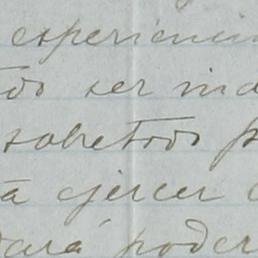 experienci
tos ser ind
sobretodo p
a ejercer
dará poder